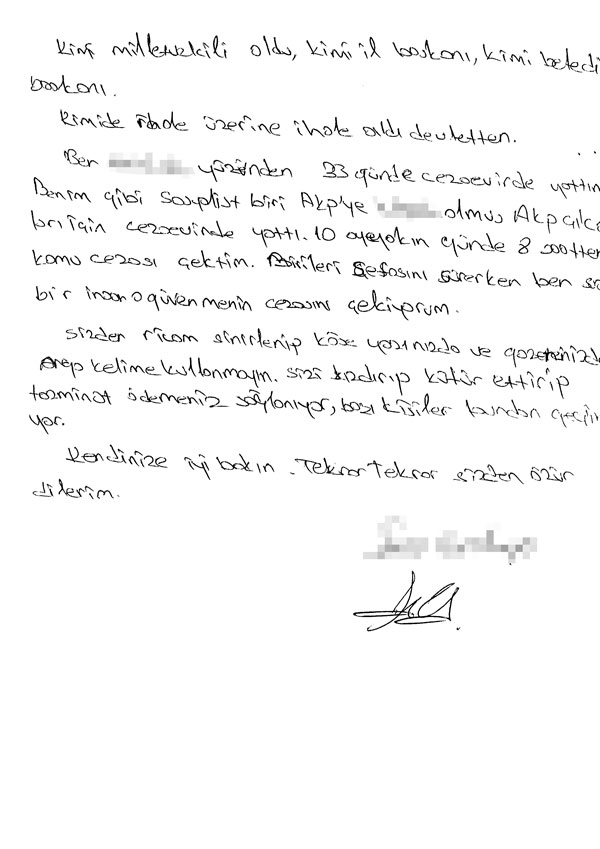 Kimi milletvekili oldu, kimi il başkanı, kimi beledi
başkanı.
Kimide ihale üzerine ihale aldı devletten.
Ben yüzünden 33 günde cezaevinde yattım
Benim gibi sosyalist biri Akp'ye olmuş Akp
bri için cezaevinde yattı. 10 günde 8 saatten
kamu cezası çektim. Birileri sefasını sürerken ben
bir insana güvenmenin cezasını çekiyorum.
Sizden ricam sinirlenip köşe yazınızda ve gazetenizde
Arap kelime kullanmayın. Sizi kızdırıp küfür ettirip
tazminat ödemeniz sağlanıyor, bazı kişiler bundan geçin
yor.
Kendinize iyi bakın. Tekrar Tekrar sizden özür
dilerim.